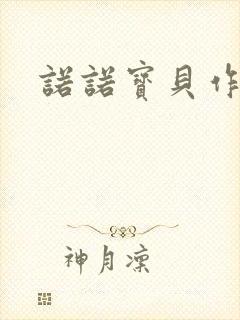 諾諾寶貝作
神月凜